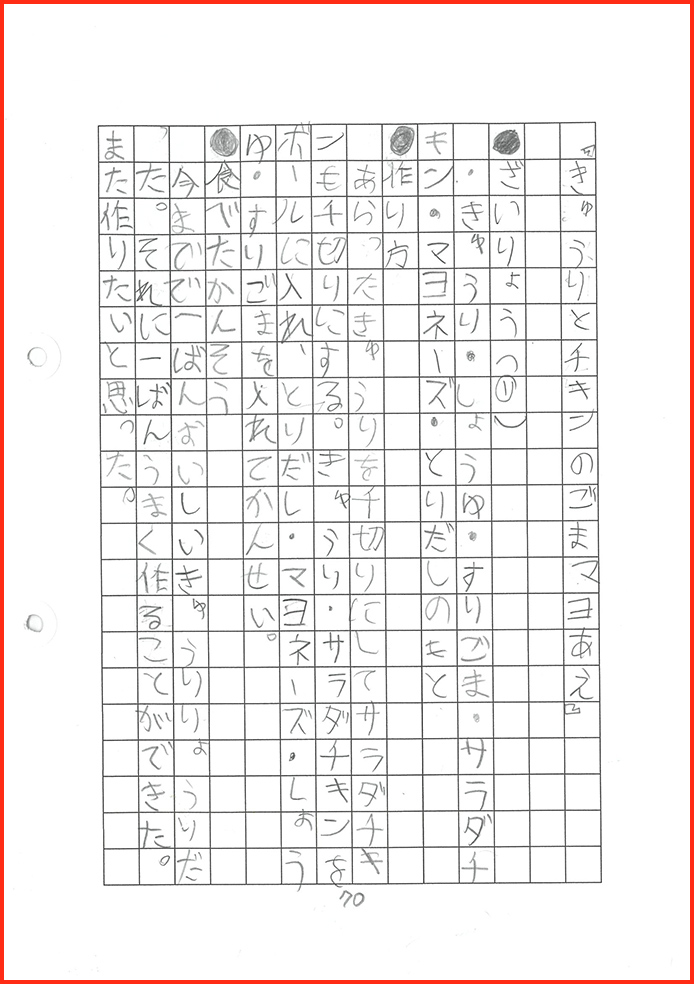 「きゅうりとチキンのごまマヨあえ」
●ざいりょう(①)
・きゅうり・しょうゆ・すりごま・サラダチ
キン・マヨネーズ・とりだしのもと
●作り方
あらったきゅうりを千切りにしてサラダチキ
ンも千切りにする。きゅうり・サラダチキンを
ボールに入れ、とりだし・マヨネーズ・しょう
ゆ・すりごまを入れてかんせい。
●食べたかんそう
今までで一ばんおいしいきゅうりりょうりだ
った。それに一ばんうまく作ることができた。
また作りたいと思った。
70